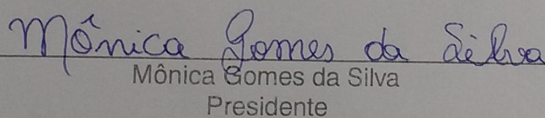 Mônica Gomes da Silva
Mônica Gomes da Silva
Presidente